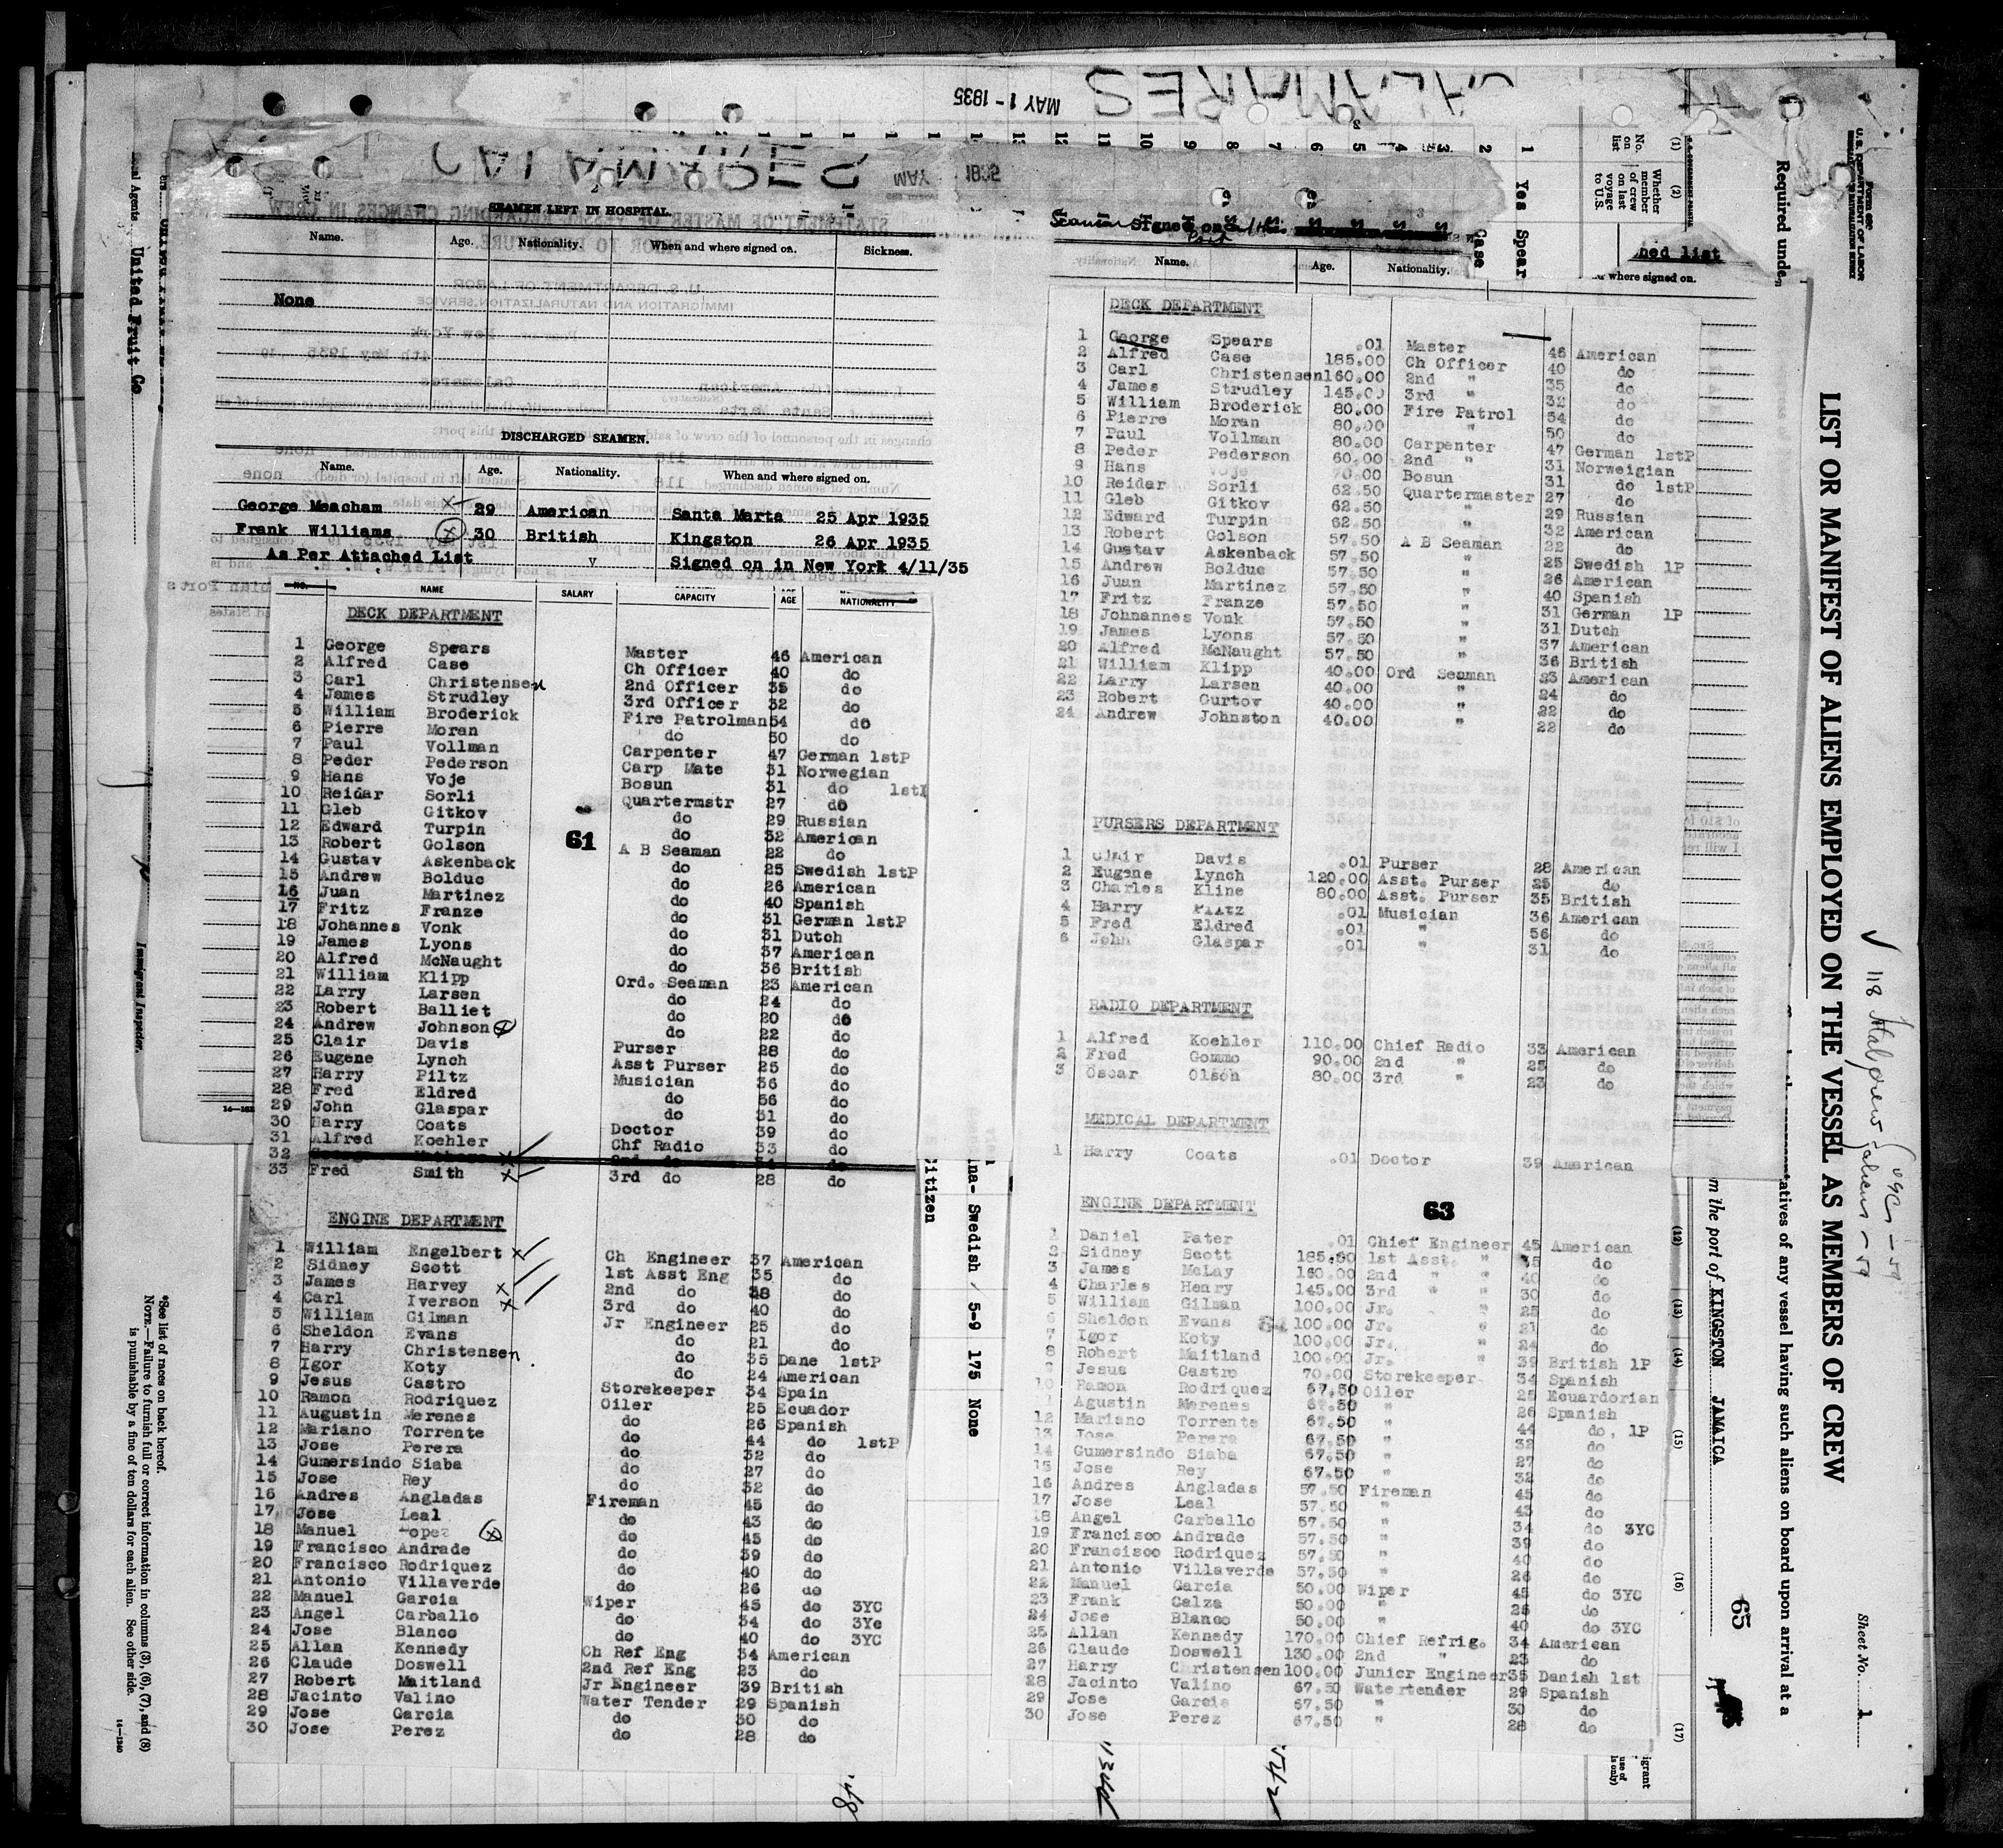 MAY 1 - 1935
CALAMARES
SEAMEN LEFT IN HOSPITAL.
Name. Age. Nationality. When and where signed on. Sickness.
None
DISCHARGED SEAMEN.
Name. Age. Nationality. When and where signed on.
George Meacham X 29 American Santa Marta 25 Apr 1935
Frank Williams X 30 British Kingston 26 Apr 1935
As Per Attached List v Signed on in New York 4/11/35
NO. NAME SALARY CAPACITY AGE NATIONALITY
DECK DEPARTMENT
1 George Spears Master 46 American
2 Alfred Case Ch Officer 40 do
3 Carl Christensen 2nd Officer 35 do
4 James Strudley 3rd Officer 32 do
5 William Broderick Fire Patrolman 54 do
6 Pierre Moran do 50 do
7 Paul Vollman Carpenter 47 German 1stP
8 Peder Pederson Carp Mate 31 Norwegian
9 Hans Voje Bosun 31 do
10 Reidar Sorli Quartermstr 27 do
11 Gleb Gitkov do 29 Russian
12 Edward Turpin do 32 American
13 Robert Golson A B Seaman 22 do
14 Gustav Askenback do 25 Swedish 1stP
15 Andrew Bolduc do 26 American
16 Juan Martinez do 40 Spanish
17 Fritz Franze do 31 German 1stP
18 Johannes Vonk do 31 Dutch
19 James Lyons do 37 American
20 Alfred McNaught do 36 British
21 William Klipp Ord. Seaman 23 American
22 Larry Larsen do 24 do
23 Robert Balliet do 20 do
24 Andrew Johnson do 22 do
25 Clair Davis Purser 28 do
26 Eugene Lynch Asst Purser 25 do
27 Harry Piltz Musician 36 do
28 Fred Eldred do 56 do
29 John Glaspar do 31 do
30 Harry Coats Doctor 39 do
31 Alfred Koehler Chf Radio 33 do
32
33 Fred Smith X 3rd do 28 do
61
ENGINE DEPARTMENT
1 William Engelbert X Ch Engineer 37 American
2 Sidney Scott 1st Asst Eng 35 do
3 James Harvey X 2nd do 38 do
4 Carl Iverson X 3rd do 40 do
5 William Gilman Jr Engineer 25 do
6 Sheldon Evans do 21 do
7 Harry Christensen do 35 Dane 1stP
8 Igor Koty do 24 American
9 Jesus Castro Storekeeper 34 Spain
10 Ramon Rodriquez Oiler 25 Ecuador
11 Augustin Merenes do 26 Spanish
12 Mariano Torrente do 44 do 1stP
13 Jose Perera do 32 do
14 Gumersindo Siaba do 27 do
15 Jose Rey do 32 do
16 Andres Angladas Fireman 45 do
17 Jose Leal do 43 do
18 Manuel Lopez X do 45 do
19 Francisco Andrade do 39 do
20 Francisco Rodriquez do 40 do
21 Antonio Villaverde do 26 do
22 Manuel Garcia Wiper 45 do 3YC
23 Angel Carballo do 34 do 3Yc
24 Jose Blanco do 40 do 3YC
25 Allan Kennedy Ch Ref Eng 34 American
26 Claude Doswell 2nd Ref Eng 23 do
27 Robert Maitland Jr Engineer 39 British
28 Jacinto Valino Water Tender 29 Spanish
29 Jose Garcia do 30 do
30 Jose Perez do 28 do
Signed on
Name. Age. Nationality. where signed on.
DECK DEPARTMENT
1 George Spears .01 Master 46 American
2 Alfred Case 185.00 Ch Officer 40 do
3 Carl Christensen 160.00 2nd " 35 do
4 James Strudley 145.00 3rd " 32 do
5 William Broderick 80.00 Fire Patrol 54 do
6 Pierre Moran 80.00 " 50 do
7 Paul Vollman 80.00 Carpenter 47 German 1stP
8 Peder Pederson 60.00 2nd " 31 Norweigian
9 Hans Voje 70.00 Bosun 31 do 1stP
10 Reidar Sorli 62.50 Quartermaster 27 do
11 Gleb Gitkov 62.50 " 29 Russian
12 Edward Turpin 62.50 " 32 American
13 Robert Golson 57.50 A B Seaman 22 do
14 Gustav Askenback 57.50 " 25 Swedish 1P
15 Andrew Bolduc 57.50 " 26 American
16 Juan Martinez 57.50 " 40 Spanish
17 Fritz Franze 57.50 " 31 German 1P
18 Johnannes Vonk 57.50 " 31 Dutch
19 James Lyons 57.50 " 37 American
20 Alfred McNaught 57.50 " 36 British
21 William Klipp 40.00 Ord Seaman 23 American
22 Larry Larsen 40.00 " 24 do
23 Robert Gurtov 40.00 " 22 do
24 Andrew Johnston 40.00 " 22 do
PURSERS DEPARTMENT
1 Clair Davis .01 Purser 28 American
2 Eugene Lynch 120.00 Asst. Purser 25 do
3 Charles Kline 80.00 Asst. Purser 35 British
4 Harry Piltz .01 Musician 36 American
5 Fred Eldred .01 " 56 do
6 John Glaspar .01 " 31 do
RADIO DEPARTMENT
1 Alfred Koehler 110.00 Chief Radio 33 American
2 Fred Gommo 90.00 2nd " 25 do
3 Oscar Olson 80.00 3rd " 23 do
MEDICAL DEPARTMENT
1 Harry Coats .01 Doctor 39 American
ENGINE DEPARTMENT
63
1 Daniel Pater .01 Chief Engineer 45 American
2 Sidney Scott 185.00 1st Asst. " 35 do
3 James McLay 160.00 2nd " " 40 do
4 Charles Henry 145.00 3rd " " 30 do
5 William Gilman 100.00 Jr. " 25 do
6 Sheldon Evans 100.00 Jr. " 21 do
7 Igor Koty 100.00 Jr. " 24 do
8 Robert Maitland 100.00 Jr. " 39 British 1P
9 Jesus Castro 70.00 Storekeeper 34 Spanish
10 Ramon Rodriquez 67.50 Oiler 25 Ecuardorian
Agustin Merenes 67.50 " 26 Spanish
12 Mariano Torrente 67.50 " 44 do, 1P
13 Jose Perera 67.50 " 32 do
14 Gumersindo Siaba 67.50 " 27 do
15 Jose Rey 67.50 " 32 do
16 Andres Angladas 57.50 Fireman 45 do
17 Jose Leal 57.50 " 43 do
18 Angel Carballo 57.50 " 34 do 3YC
19 Francisco Andrade 57.50 " 39 do
20 Francisco Rodriquez 57.50 " 40 do
21 Antonio Villaverde 57.50 " 26 do
22 Manuel Garcia 50.00 Wiper 45 do 3YC
23 Frank Calza 50.00 " 25 do
24 Jose Blanco 50.00 " 40 do 3YC
25 Allan Kennedy 170.00 Chief Refrig. 34 American
26 Claude Doswell 130.00 2nd " 23 do
27 Harry Christensen 100.00 Junior Engineer 35 Danish 1st
28 Jacinto Valino 67.50 Watertender 29 Spanish
29 Jose Garcia 67.50 " 30 do
30 Jose Perez 67.50 " 28 do
U.S. DEPARTMENT OF LABOR
LIST OR MANIFEST OF ALIENS EMPLOYED ON THE VESSEL AS MEMBERS OF CREW
Required under
of any vessel having such aliens on board upon arrival at a
the port of KINGSTON JAMAICA
Sheet No. 1
65
(1) (2)
No. on list
Whether member of crew on last voyage to U.S.
1 Yes Spear
2 Case
(12) (13) (14) (15) (16) (17)
Swedish 5-9 175 None
Citizen
United Fruit Co
Immigrant Inspector.
*See list of races on back hereof.
NOTE.—Failure to furnish full or correct information in columns (3), (6), (7), and (8)
is punishable by a fine of ten dollars for each alien. See other side.
14-1240